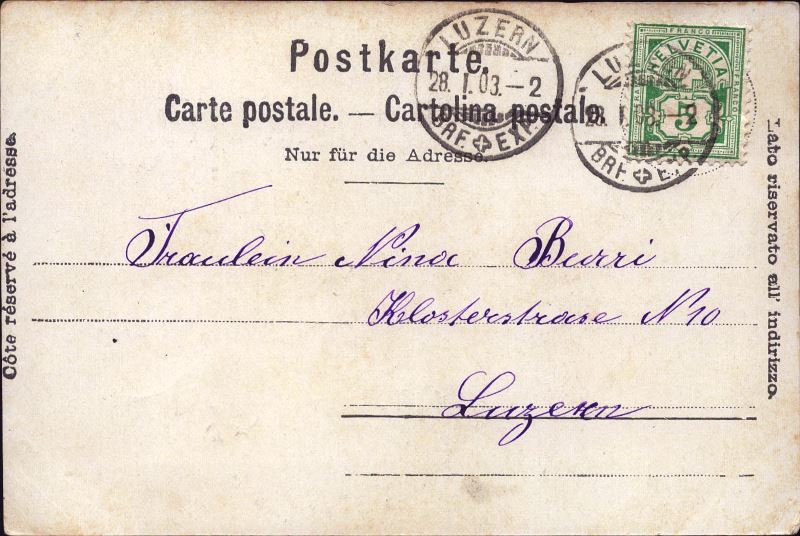 Postkarte.
Carte postale. — Cartolina postale.
Nur für die Adresse.
LUZERN
28. I. 03. – 2
BRF. EXP.
LUZERN
28. I. 03. – 2
BRF. EXP.
FRANCO
HELVETIA
5
Côte réservé à l'adresse.
Lato riservato all' indirizzo.
Fraulein Nina Burri
Klosterstrase N 10
Luzern